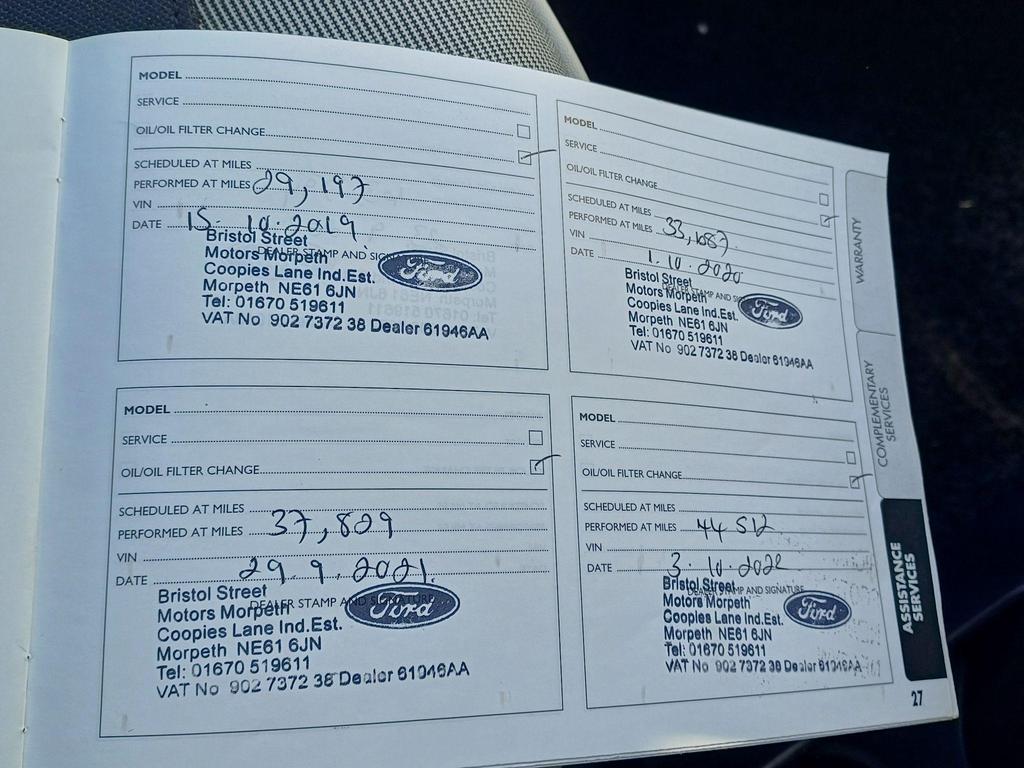 MODEL
SERVICE
OIL/OIL FILTER CHANGE
SCHEDULED AT MILES
PERFORMED AT MILES 29,197
VIN
DATE 15.10.2019
DEALER STAMP AND SIGN
Bristol Street
Motors Morpeth
Coopies Lane Ind.Est.
Morpeth NE61 6JN
Tel: 01670 519611
VAT No 902 7372 38 Dealer 61946AA
Ford
MODEL
SERVICE
OIL/OIL FILTER CHANGE
SCHEDULED AT MILES
PERFORMED AT MILES 33,687
VIN
DATE 1.10.2020
DEALER STAMP AND SIG
Bristol Street
Motors Morpeth
Coopies Lane Ind.Est.
Morpeth NE61 6JN
Tel: 01670 519611
VAT No 902 7372 38 Dealer 61946AA
Ford
MODEL
SERVICE
OIL/OIL FILTER CHANGE
SCHEDULED AT MILES
PERFORMED AT MILES 37,829
VIN
DATE 29.9.2021
DEALER STAMP AND SIGNATURE
Bristol Street
Motors Morpeth
Coopies Lane Ind.Est.
Morpeth NE61 6JN
Tel: 01670 519611
VAT No 902 7372 38 Dealer 61946AA
Ford
MODEL
SERVICE
OIL/OIL FILTER CHANGE
SCHEDULED AT MILES
PERFORMED AT MILES 44 512
VIN
DATE 3.10.2022
DEALER STAMP AND SIGNATURE
Bristol Street
Motors Morpeth
Coopies Lane Ind.Est.
Morpeth NE61 6JN
Tel: 01670 519611
VAT No 902 7372 38 Dealer 61946AA
Ford
WARRANTY
COMPLEMENTARY
SERVICES
ASSISTANCE
SERVICES
27